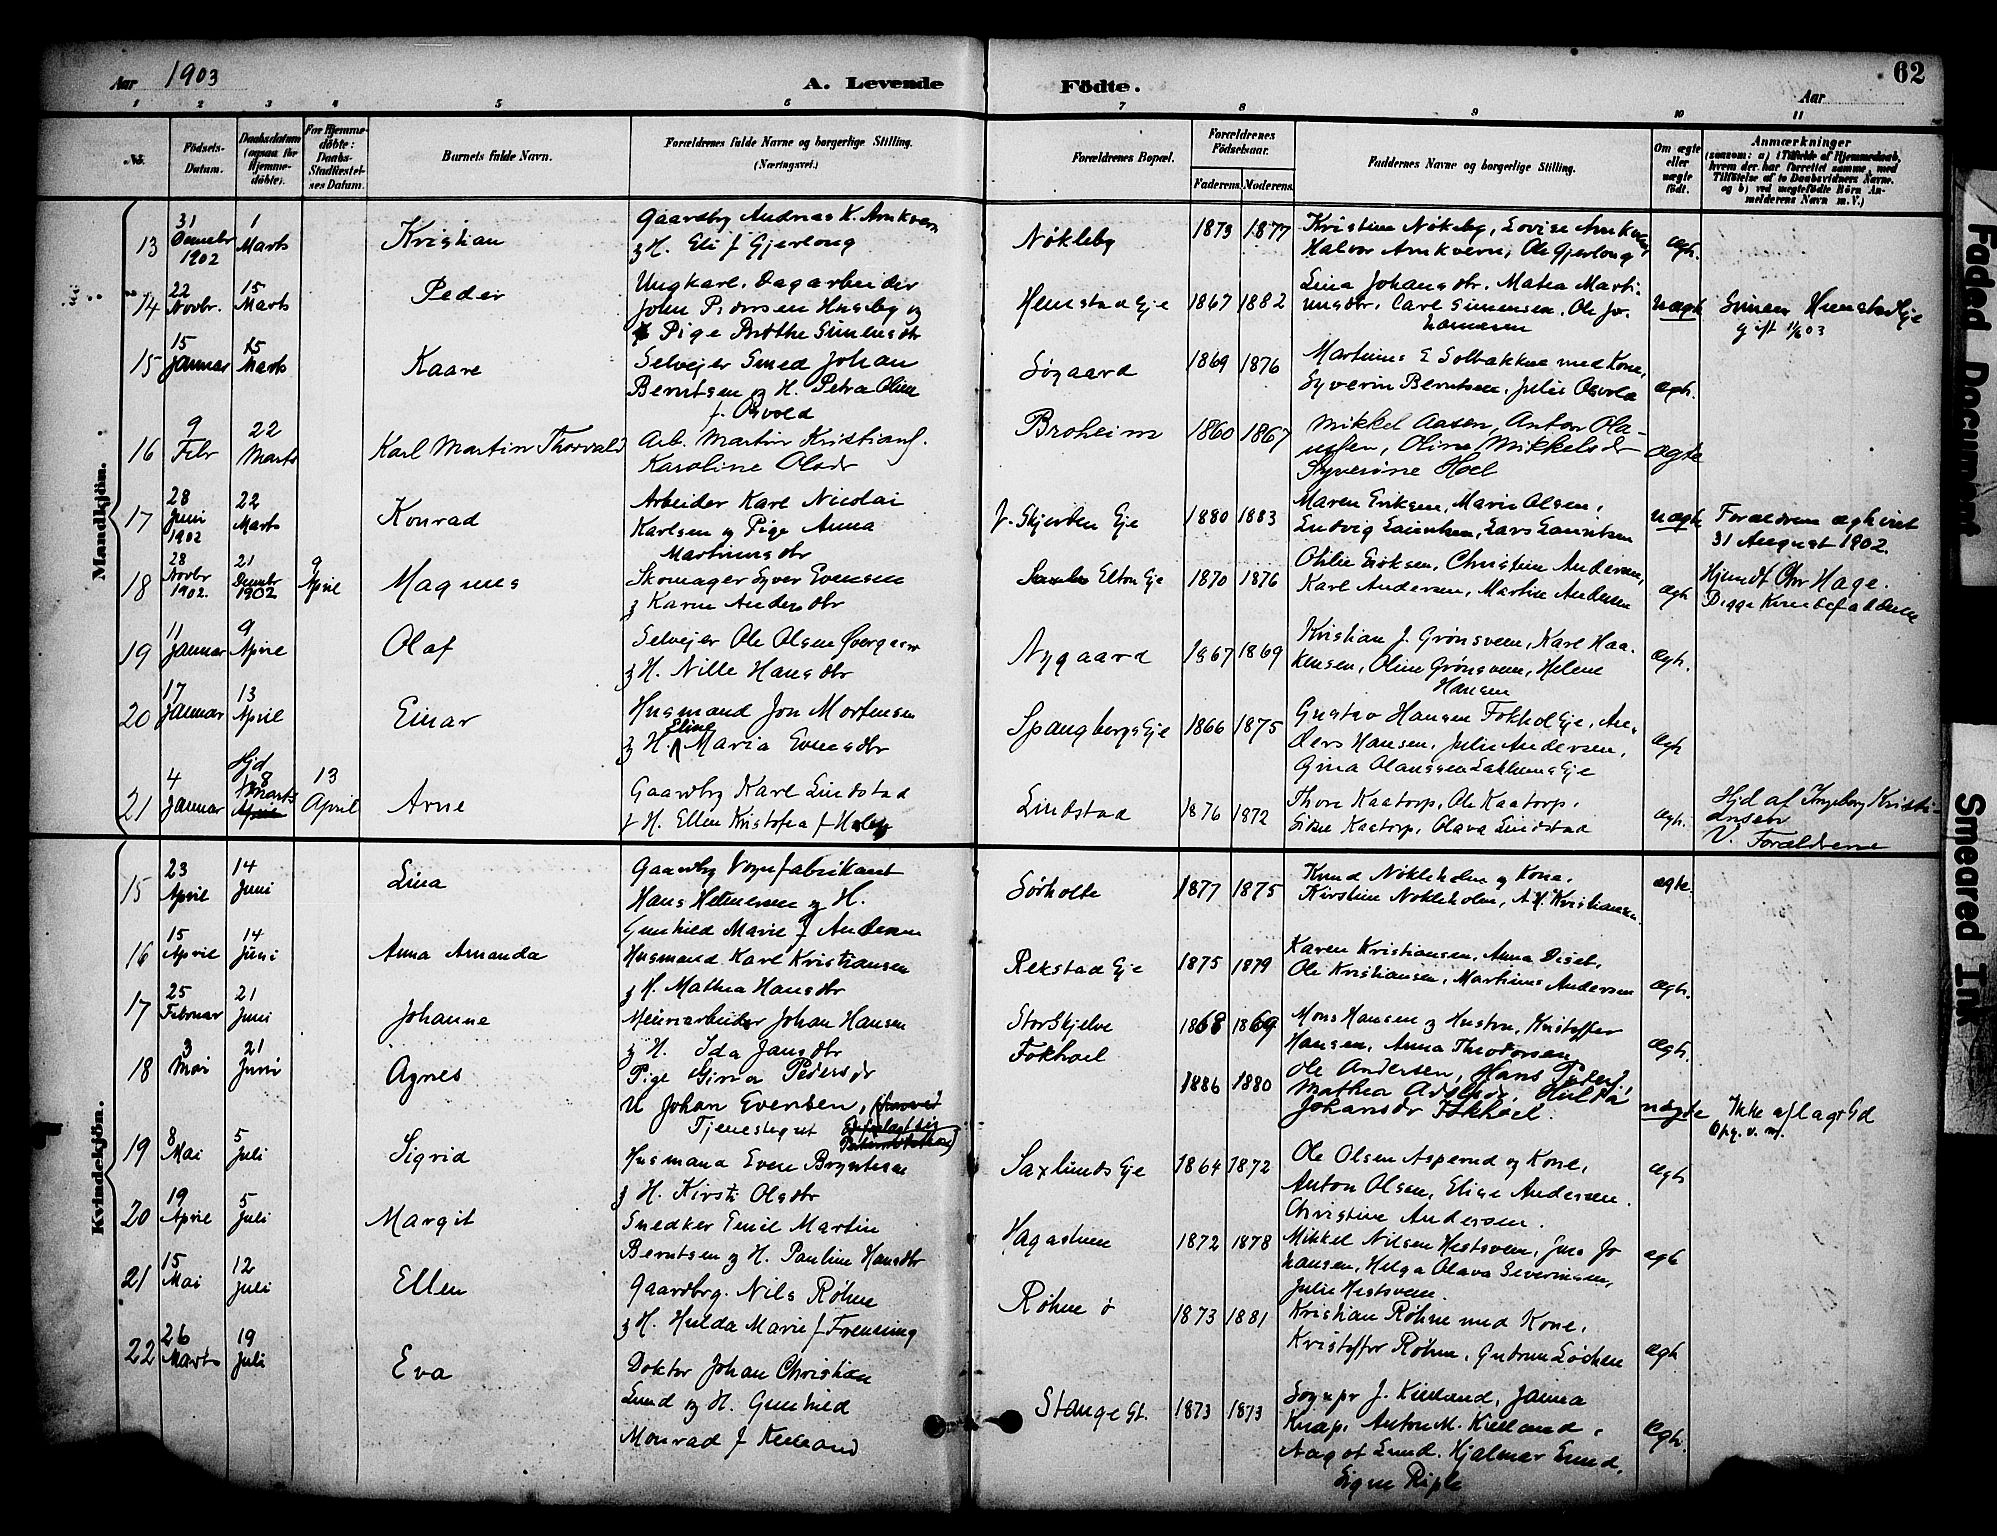 Aar 1903
A. Levende Födte.
Aar
62
1 2 3 4 5 6 7 8 9 10 11
No.
Födsels-Datum.
Daabsdatum (ogsaa for Hjemme-döbte).
For Hjemme-döbte: Daabs-Stadfæstel-ses Datum.
Barnets fulde Navn.
Forældrenes fulde Navne og borgerlige Stilling. (Næringsvei.)
Forældrenes Bopæl.
Forældrenes Födselsaar.
Faderens. Moderens.
Faddernes Navne og borgerlige Stilling.
Om ægte eller uægte födt.
Anmærkninger
(saasom: a) i Tilfælde af Hjemmedaab, hvem der har forrettet samme, med Tilföielse af to Daabsvidners Navne. og b) ved uægtefödte Börn An-melderens Navn m. V.)
Mandkjön.
13 31 Decembr 1902 1 Marts Kristian
Gaardbr Andreas K. Arnkvern
& H. Eli f Gjerlong
Nøkleby 1873 1877
Kristine Nøkleby, Lovise Arnkvern,
Halvor Arnkvern, Ole Gjerlong
ægh.
14 22 Novbr. 15 Marts Peder
Ungkarl. Dagarbeider
John Pedersen Huseby og
Pige Berthe Simensdr
Hemstad Eje 1867 1882
Lina Johansdr. Matea Marti-
nusdr. Carl Simensen. Ole Jo-
hannesen
uægh
Simen Hemstad Eje
gift 1/6 03
15 15 Januar 15 Marts Kaare
Selvejer Smed Johan
Berntsen og H. Petra Oline
f. Osvold
Søgaard 1869 1876
Martinus E Solbakken med Kone,
Syverin Berntsen, Julie Osvold
ægh.
16 9 Febr 22 Marts Karl Martin Thorvald
Arb. Martin Kristians.
Karoline Olsdr
Broheim 1860 1867
Mikkel Aasen, Anton Ola-
ussen, Oline Mikkelsdr
Syverine Hoel
ægte
17 28 Juni 1902 22 Marts Konrad
Arbeider Karl Nicolai
Karlsen og Pige Anna
Martinusdr
f. Skjerden Eje 1880 1883
Maren Eriksen, Marie Olsen,
Ludvig Lauritsen, Lars Lauritsen
uægh
Forældrene ægteviet
31 August 1902.
18 28 Novbr 1902. 21 Decmbr 1902 9 April Magnus
Skomager Syver Evensen
& Karen Andersdr
Elton Eje 1870 1876
Othilie Eriksen, Christine Andersen,
Karl Andersen, Martin Andersen
ægh
Hjemdt Chr Hage.
19 11 Januar 9 April Olaf
Selvejer Ole Olsen Øvergaar
& H. Nille Hansdtr
Nygaard 1867 1869
Kristian J. Grønsveen, Karl Haa-
kensen, Oline Grønsveen, Helene
Hansen
ægh.
20 17 Januar 13 April Einar
Husmand Jon Mortensen
& H. Eline Maria Evensdtr
Spangbergs Eje 1866 1875
Gustav Hansen Fokhol Eje, An-
ders Hansen, Julie Andersen,
Gina Olaussen Eje
ægh
21 4 Januar Hjd 8 Marts April 13 April Arne
Gaardbr Karl Lindstad
& H. Ellen Kristofa f
Lindstad 1876 1872
Thora Kaatorp, Ole Kaatorp,
Sikne Kaatorp, Olava Lindstad
ægh.
Hjd af Ingeborg Kristi-
ansen
V. Forældrene
Kvindekjön.
15 23 April 14 Juni Lina
Gaardbr Vognfabrikant
Hans Helmersen og H.
Gunhild Marie f Andersen
Sørholte 1877 1875
Knud Nøkleholm og Kone,
Kirstine Nøkleholm, A.H. Kristiansen
ægte.
16 15 April 14 Juni Anna Amanda
Husmand Karl Kristiansen
& H. Mathea Hansdtr
Rekstad Eje 1875 1879
Karen Kristiansen, Anna Diset,
Ole Kristiansen, Martinus Andersen
ægh.
17 25 Februar 21 Juni Johanne
Meieriarbeider Johan Hansen
& H. Ida Jansdtr
Stor Skjelve 1868 1869
Mons Hansen og Hustru, Kristoffer
Hansen, Anna Theodorsen
ægh.
18 3 Mai 21 Juni Agnes
Pige Gina Pedersdr
U Johan Evensen,
Tjenestegut
Fokhoel 1886 1880
Ole Andersen, Hans Peders.,
Mathea Adolfsdr, Hulda
Johansdr Fokhoel.
uægte
Ikke aflagt Ed
Opg. v. M.
19 8 Mai 5 Juli Sigrid
Husmand Even Bryntesen
& H. Kirsti Olsdtr
Saxlunds Eje 1864 1872
Ole Olsen Asperud og Kone,
Anton Olsen, Elise Andersen.
Christine Andersen.
ægh
20 19 April 5 Juli Margit
Snedker Emil Martin
Berntsen og H. Pauline Hansdtr
Hagastuen 1872 1878
Mikkel Nilsen Hestsveen, Jens Jo
hansen, Helga Olava Severinsen,
Julie Hestsveen.
ægh
21 15 Mai 12 Juli Ellen
Gaardbrg. Nils Røhne
& H. Hulda Marie f Frenning
Røhne ø 1873 1881
Kristian Røhne med Kone,
Kristoffer Røhne, Gudrun Løchen
ægh
22 26 Marts 19 Juli Eva
Doktor Johan Christian
Lund og H. Gunhild
Monrad f Kielland
Stange St. 1873 1873
Sognpr J. Kielland, Janna
Knap, Anton M. Kielland,
Aagot Lund. Hjalmar Lund,
Signe Riple
Ægh.
Faded Document
Smeared Ink